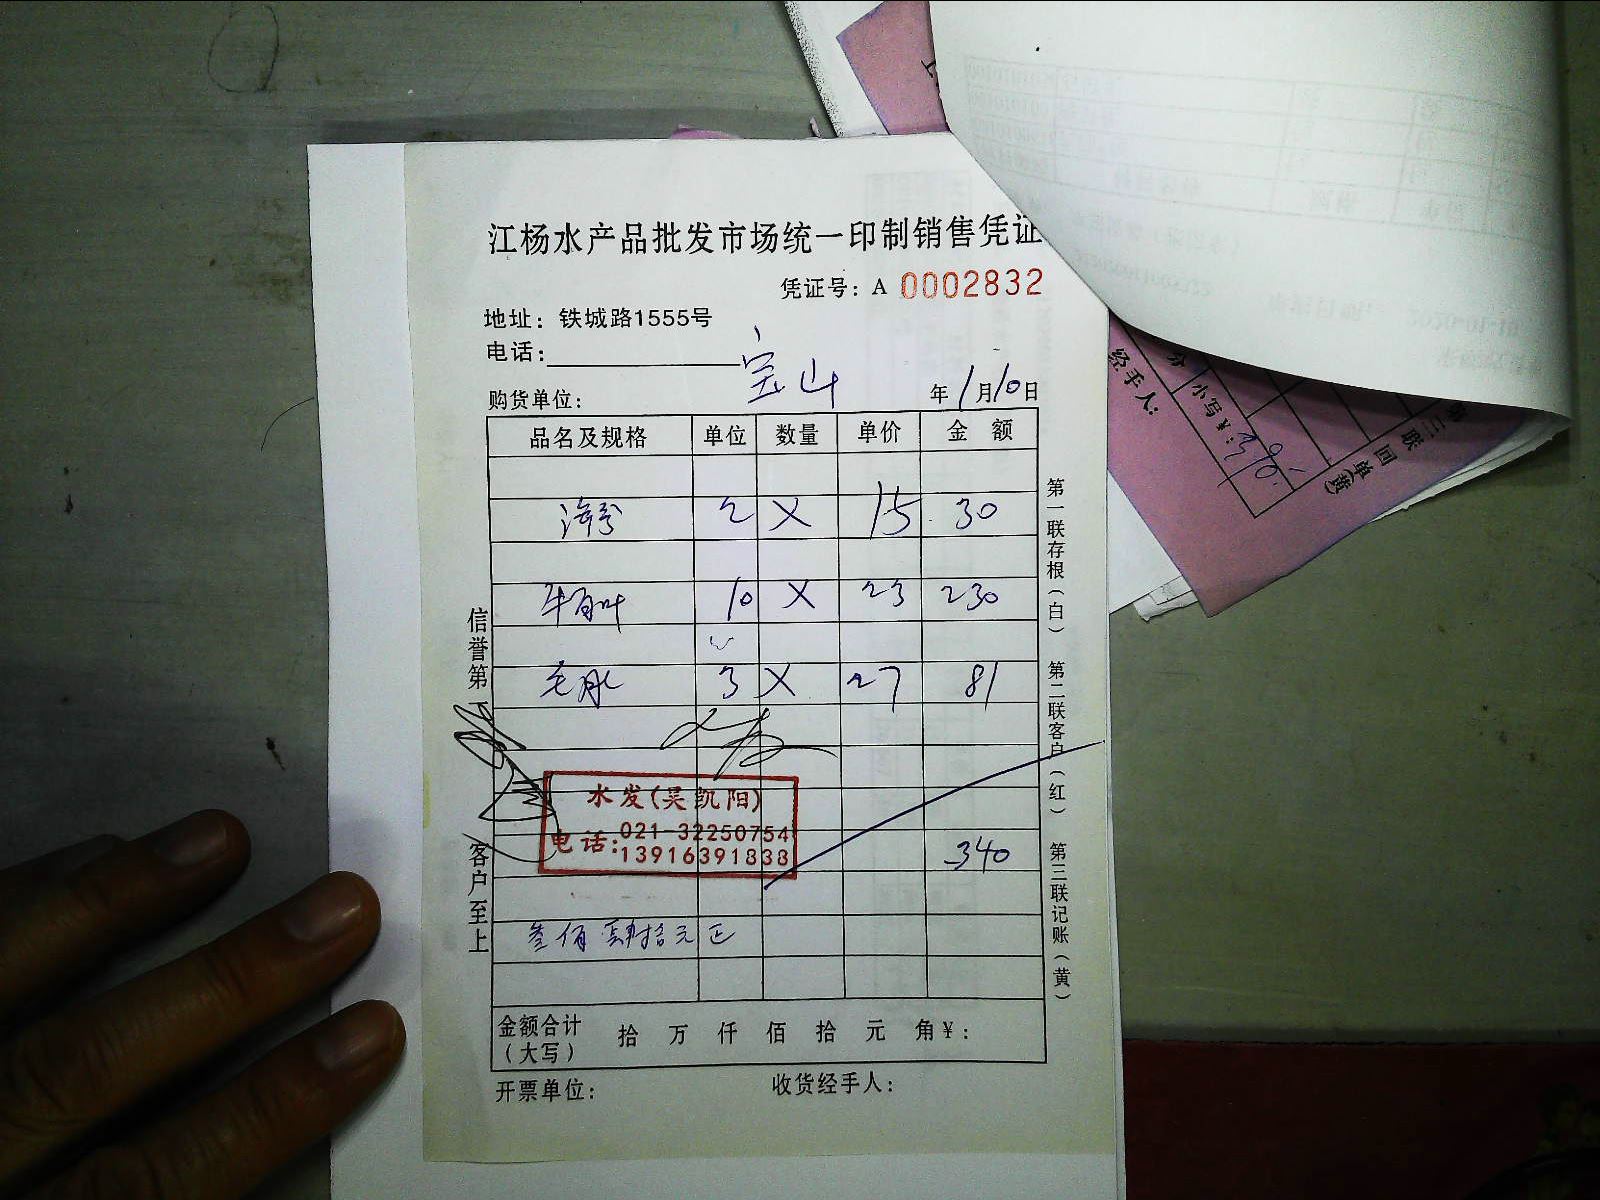 江杨水产品批发市场统一印制销售凭证
凭证号：A 0002832
地址：铁城路1555号
电话：
购货单位： 宝山 年1月10日
品名及规格 单位 数量 单价 金额
2 X 15 30
牛百叶 10 X 23 230
毛肚 3 X 27 81
水发(吴凯阳)
电话：021-32250754
13916391838
340
叁佰肆拾元正
金额合计（大写） 拾 万 仟 佰 拾 元 角¥：
开票单位： 收货经手人：
信誉第
客户至上
第一联存根（白）
第二联客户（红）
第三联记账（黄）
经手人：
小写¥：
联回单(黄)